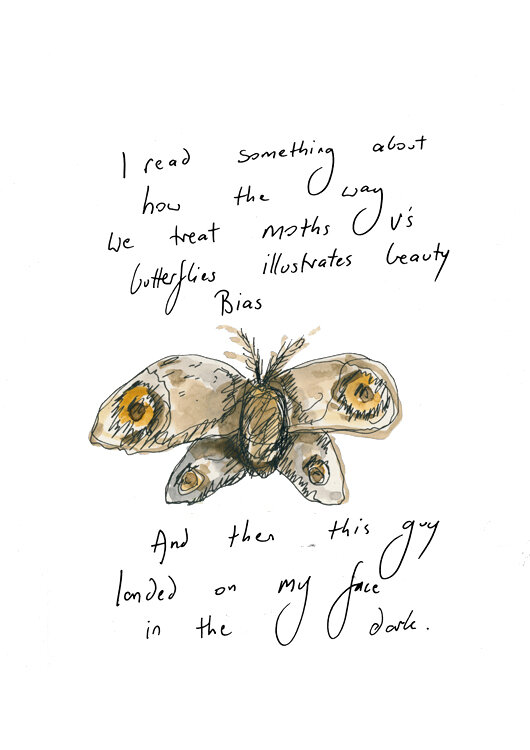 I read something about
how the way
we treat moths v's
butterflies illustrates beauty
Bias
And then this guy
landed on my face
in the dark.